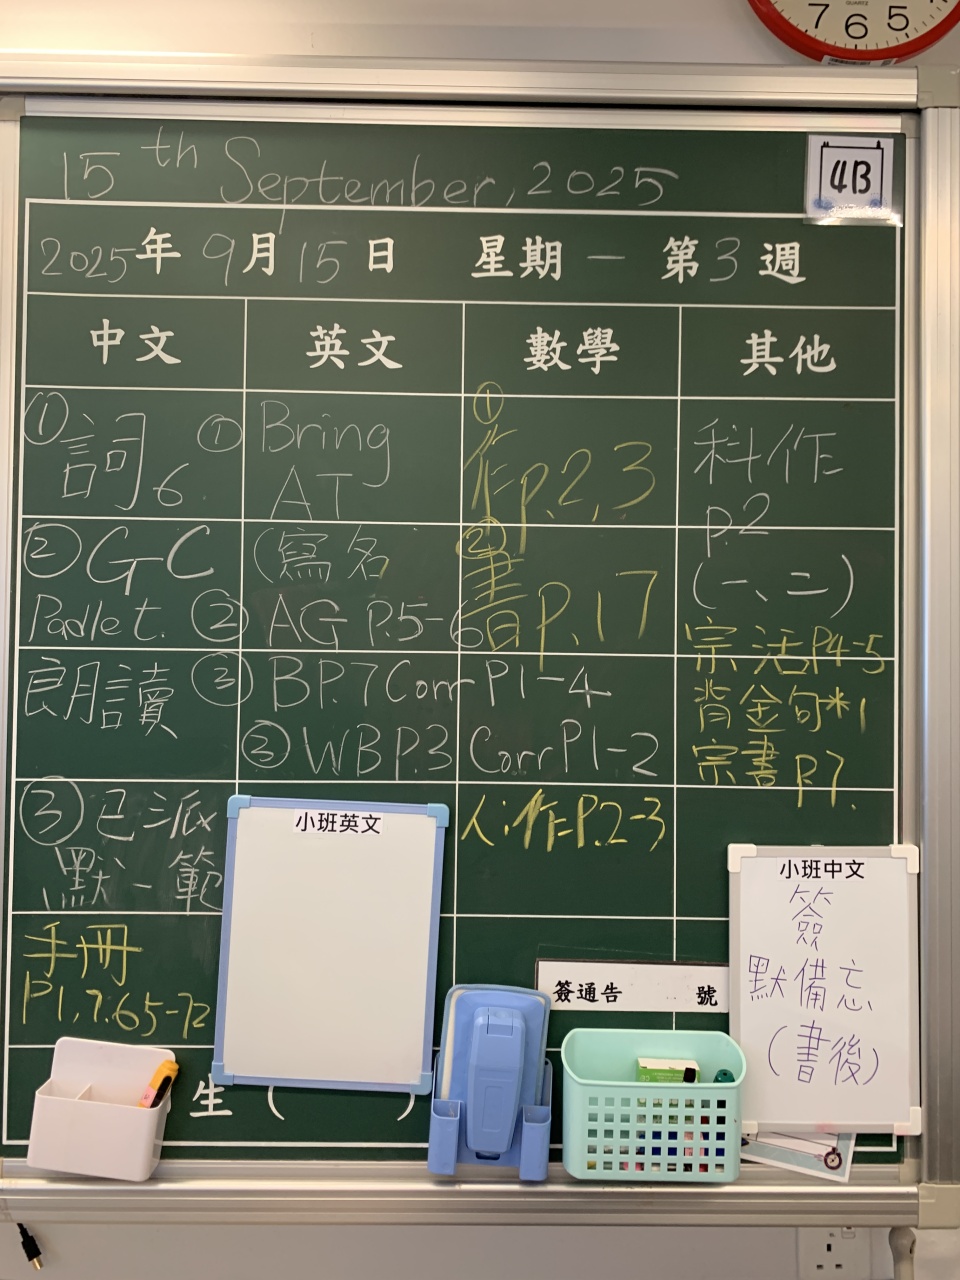 7 6 5
QUARTZ
15th September, 2025
4B
2025年 9月 15日 星期一 第3週
中文 英文 數學 其他
① 詞6
② GC
Padlet
朗讀
③ 已派
默一範
手冊
P1,7,65-72
① Bring
AT
(寫名
② AG P.5-6
③ BP.7Corr P1-4
③ WBP.3 Corr P1-2
① 作p.2,3
② 書P.17
人:作P.2-3
科作
p.2
(一、二)
宗活P4-5
背金句*1
宗書P.7.
小班英文
簽通告 號
小班中文
簽
默備忘
(書後)
生( )